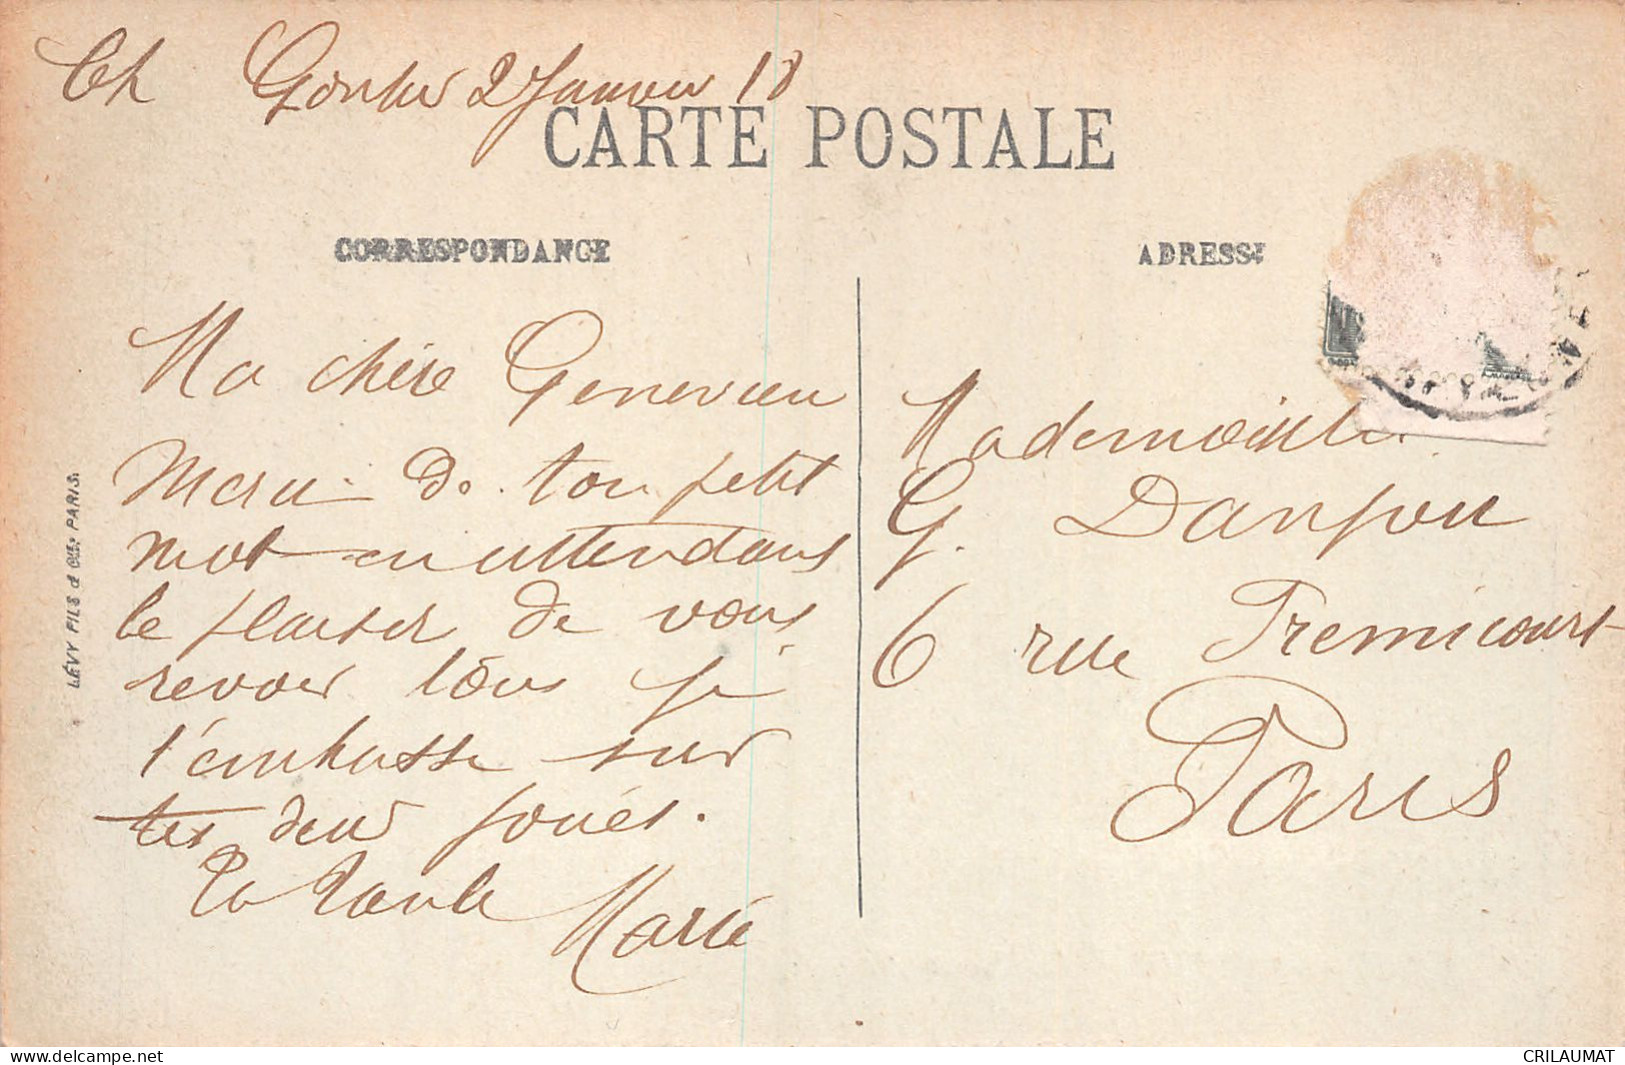 Ch Gontier 2 Janvier 18
CARTE POSTALE
CORRESPONDANCE
ADRESSE
Ma chère Geneviev
Merci de ton petit
mot en attendans
le plaisir de vous
revoir tous je
t'embrasse sur
tes deux joues.
Ta Tante Marie
Mademoiselle
G. Danjou
6 rue Fremicourt
Paris
LÉVY FILS & Cie. PARIS.
CRILAUMAT